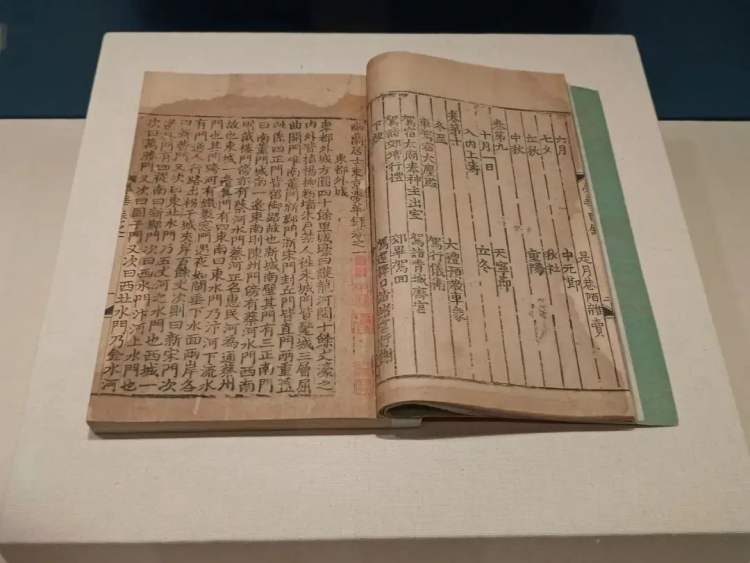 六月　是月巷陌雜賣
七夕　中元節
立秋　秋社
中秋　重陽
卷第九
十月一日　天寧節
入內上壽　立冬
卷第十
冬至　大禮預教車象
車駕宿大慶殿　駕行儀衛
駕宿太廟奉神主出室　駕詣青城齋宮
駕詣郊壇行禮　郊畢駕回
下赦　駕還擇日詣諸宮行謝
幽蘭居士東京夢華錄卷之一
東都外城
東都外城方圓四十餘里城壕曰護龍河闊十餘丈濠之
內外皆植楊柳粉墻朱戶禁人往來城門皆甕城三層屈
曲開門唯南薰門新鄭門新宋門封丘門皆直門兩重蓋
此係四正門皆留御路故也新城南壁其門有三正南門
曰南薰門城南一邊東南則陳州門傍有蔡河水門西南
則戴樓門傍亦有蔡河水門蔡河正名惠民河為通蔡州
故也東城一邊其門有四東南曰東水門乃汴河下流水
門也其門跨河有鐵裹窗門遇夜如閘垂下水面兩岸各
有門通人行路出拐子城夾岸百餘丈次則曰新宋門次
曰新曹門又次曰東北水門乃五丈河之水門也西城一
邊其門有四從南曰新鄭門次曰西水門汴河上水門也
次曰萬勝門又次曰固子門又次曰西北水門乃金水河